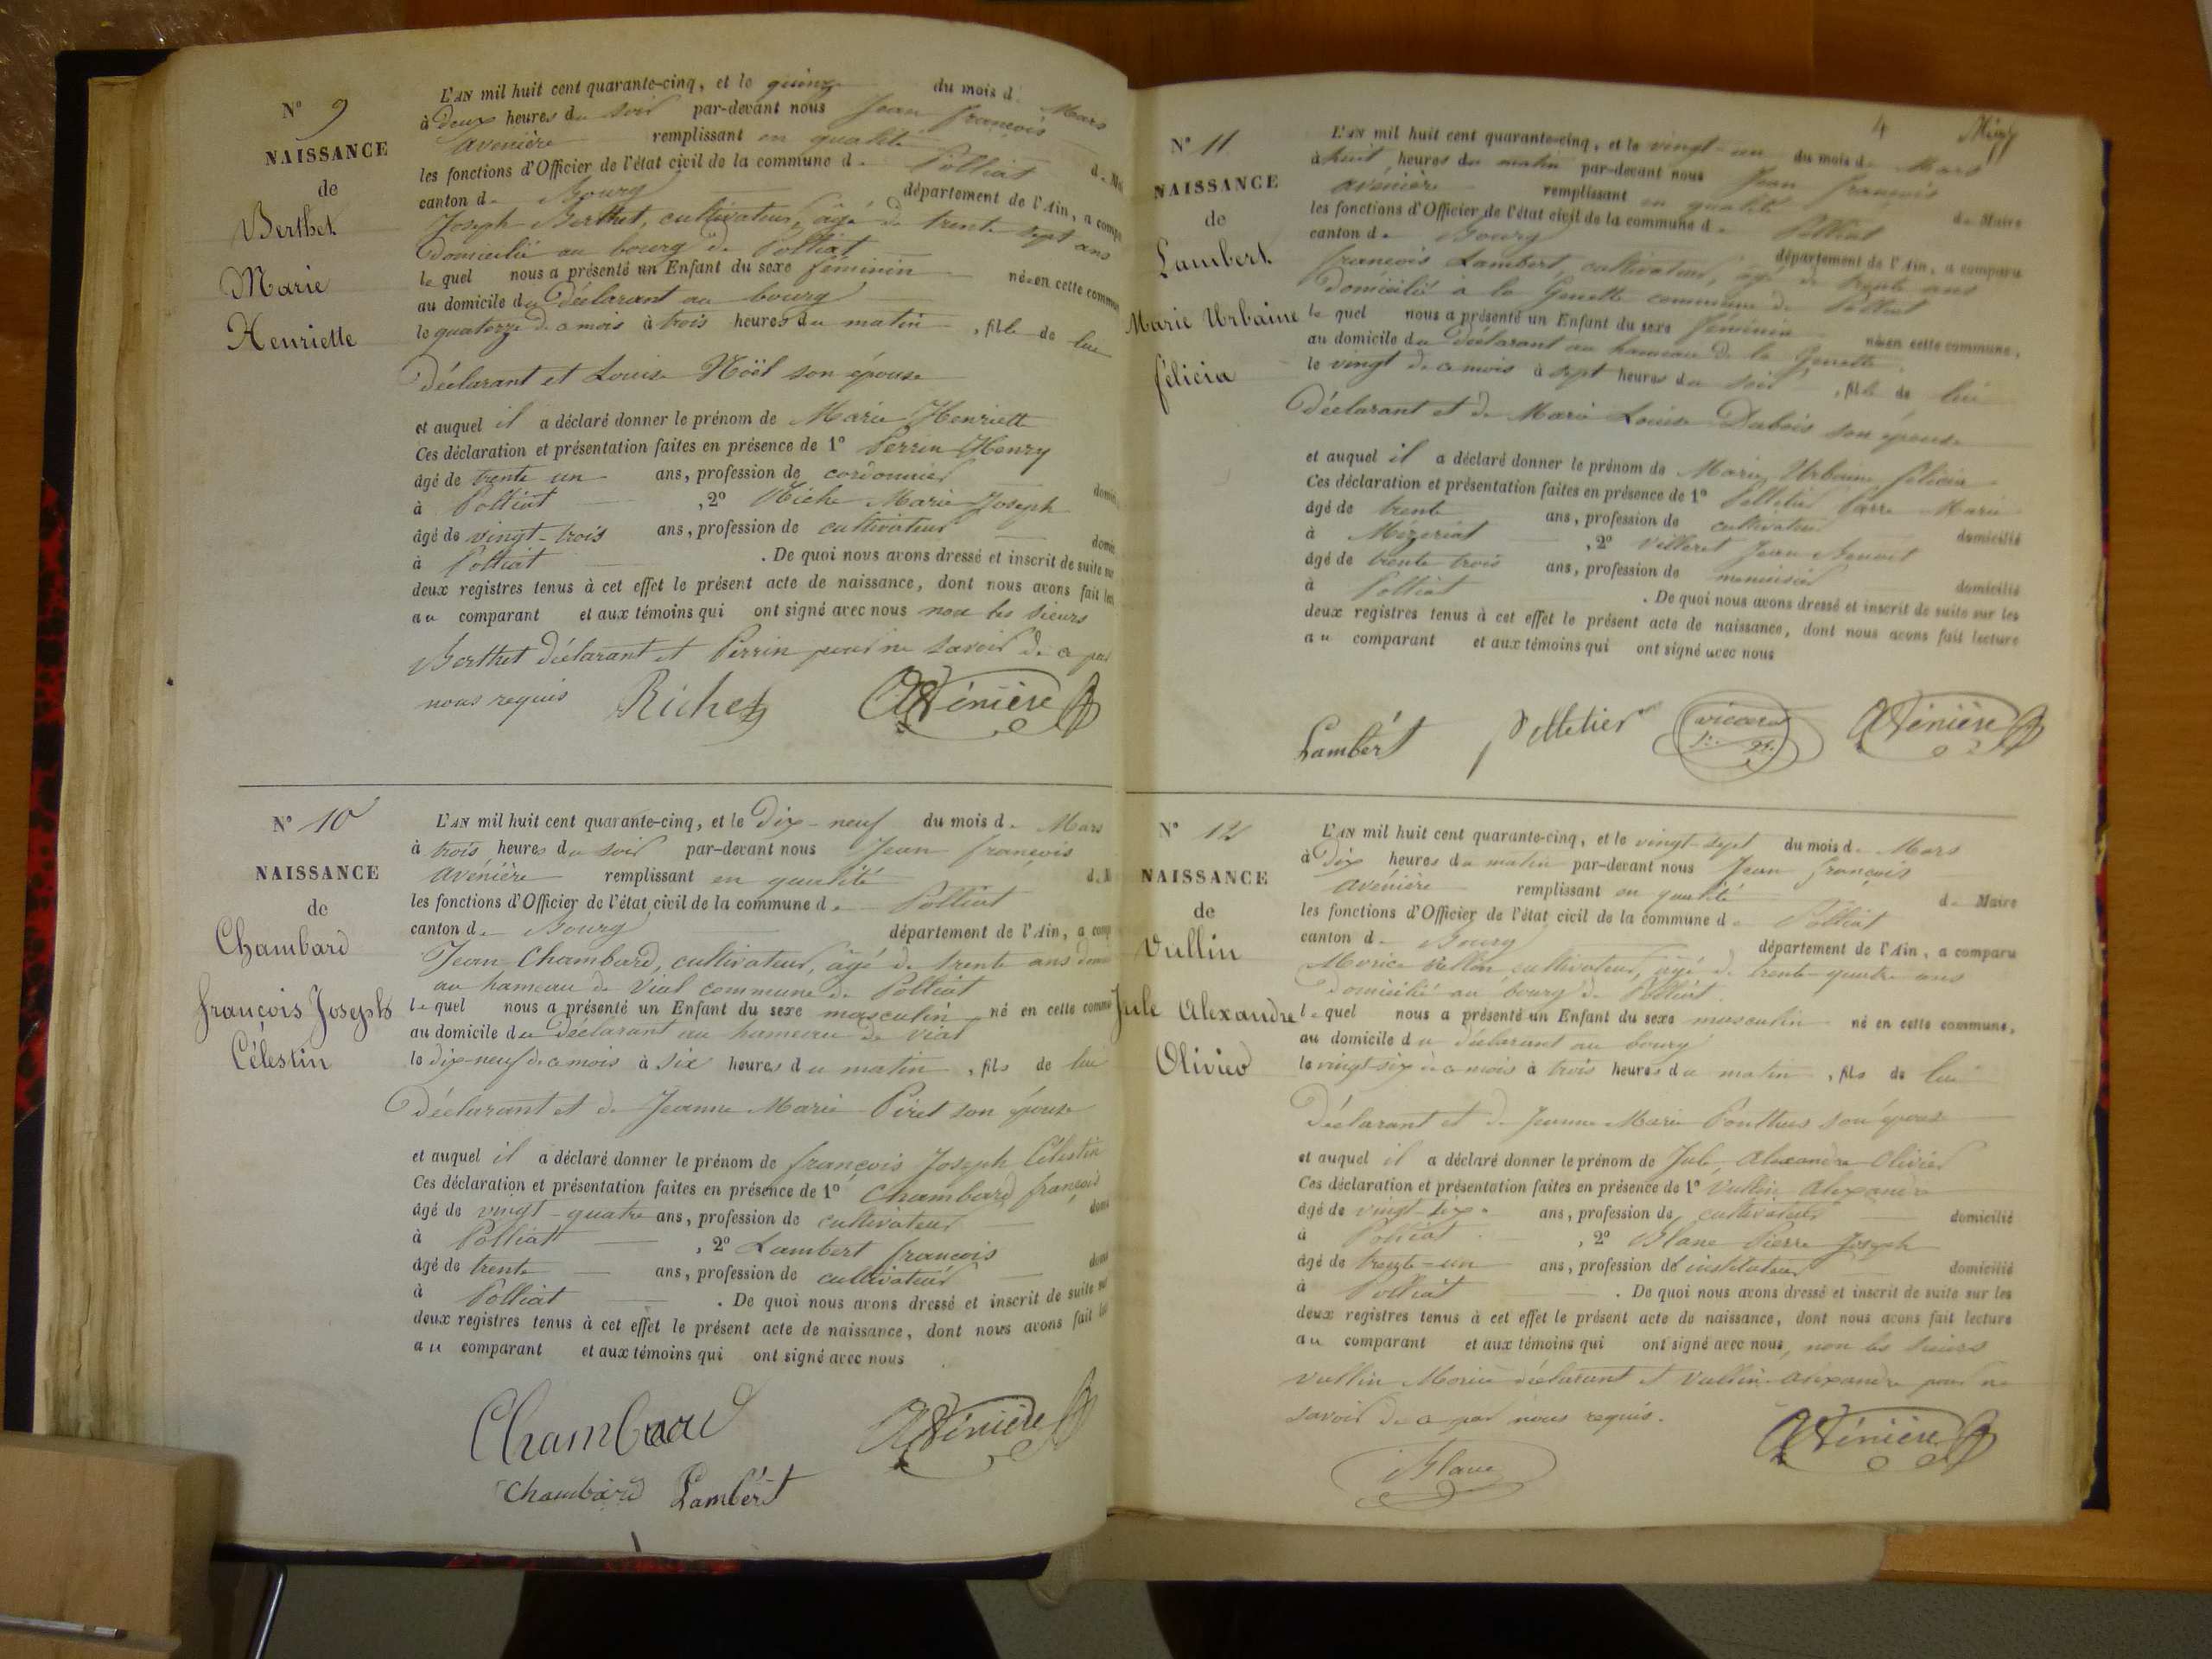 N° 9
NAISSANCE
de
Berthet
Marie
Henriette
L'AN mil huit cent quarante-cinq, et le quinze du mois de Mars
à deux heures du soir par-devant nous Jean françois
avenière remplissant en qualité d. M
les fonctions d'Officier de l'état civil de la commune de Polliat
canton de Bourg département de l'Ain, a compa
Joseph Berthet, cultivateur, âgé de trente sept ans
Domicilié au bourg de Polliat
le quel nous a présenté un Enfant du sexe féminin née en cette commun
au domicile du Déclarant au bourg
le quatorze de ce mois à trois heures du matin, fille de lui
Déclarant et Louise Noël son épouse
et auquel il a déclaré donner le prénom de Marie Henriette
Ces déclaration et présentation faites en présence de 1° Perrin Henry
âgé de trente un ans, profession de cordonnier domic
à Polliat, 2° Riche Marie Joseph
âgé de vingt-trois ans, profession de cultivateur domic
à Polliat. De quoi nous avons dressé et inscrit de suite sur
deux registres tenus à cet effet le présent acte de naissance, dont nous avons fait lec
au comparant et aux témoins qui ont signé avec nous non les sieurs
Berthet déclarant et Perrin pour ne savoir de ce par
nous requis Riche AVénière
N° 10
NAISSANCE
de
Chambard
françois Joseph
Célestin
L'AN mil huit cent quarante-cinq, et le Dix-neuf du mois de Mars
à trois heures du soir par-devant nous Jean françois
avénière remplissant en qualité d. M
les fonctions d'Officier de l'état civil de la commune de Polliat
canton de Bourg département de l'Ain, a comp
Jean Chambard, cultivateur, âgé de trente ans domi
au hameau de Vial commune de Polliat
le quel nous a présenté un Enfant du sexe masculin né en cette commu
au domicile du Déclarant au hameau de Vial
le dix-neuf de ce mois à six heures du matin, fils de lui
Déclarant et de Jeanne Marie Piret son épouse
et auquel il a déclaré donner le prénom de françois Joseph Célestin
Ces déclaration et présentation faites en présence de 1° Chambard françois
âgé de vingt-quatre ans, profession de cultivateur domi
à Polliat, 2° Lambert françois
âgé de trente ans, profession de cultivateur domi
à Polliat. De quoi nous avons dressé et inscrit de suite sur
deux registres tenus à cet effet le présent acte de naissance, dont nous avons fait lec
au comparant et aux témoins qui ont signé avec nous
Chambard AVénière
Chambard Lambért
4
N° 11
NAISSANCE
de
Lambert
Marie Urbaine
félicia
L'AN mil huit cent quarante-cinq, et le vingt-un du mois de Mars
à huit heures du matin par-devant nous Jean françois
avénière remplissant en qualité de Maire
les fonctions d'Officier de l'état civil de la commune de Polliat
canton de Bourg département de l'Ain, a comparu
françois Lambert, cultivateur, âgé de trente ans
Domicilié à la Genette commune de Polliat
le quel nous a présenté un Enfant du sexe féminin née en cette commune,
au domicile du Déclarant au hameau de la Genette
le vingt de ce mois à sept heures du soir, fille de lui
Déclarant et de Marie Louise Dubois son épouse
et auquel il a déclaré donner le prénom de Marie Urbaine félicia
Ces déclaration et présentation faites en présence de 1° Pelletier Marie
âgé de trente ans, profession de cultivateur domicilié
à Mézériat, 2° Villeret Jean Benoit
âgé de trente trois ans, profession de menuisier domicilié
à Polliat. De quoi nous avons dressé et inscrit de suite sur les
deux registres tenus à cet effet le présent acte de naissance, dont nous avons fait lecture
au comparant et aux témoins qui ont signé avec nous
Lambért Pelletier AVénière
N° 12
NAISSANCE
de
Vullin
Jule Alexandre
Olivier
L'AN mil huit cent quarante-cinq, et le vingt-sept du mois de Mars
à Dix heures du matin par-devant nous Jean françois
avénière remplissant en qualité de Maire
les fonctions d'Officier de l'état civil de la commune de Polliat
canton de Bourg département de l'Ain, a comparu
Morice Vullin cultivateur, âgé de trente-quatre ans
Domicilié au bourg de Polliat.
le quel nous a présenté un Enfant du sexe masculin né en cette commune,
au domicile du déclarant au bourg
le vingt-six de ce mois à trois heures du matin, fils de lui
Déclarant et de Jeanne Marie Ponthus son épouse
et auquel il a déclaré donner le prénom de Jule Alexandre Olivier
Ces déclaration et présentation faites en présence de 1° Vullin Alexandre
âgé de vingt-six ans, profession de cultivateur domicilié
à Polliat, 2° Blanc Pierre Joseph
âgé de trente-un ans, profession de instituteur domicilié
à Polliat. De quoi nous avons dressé et inscrit de suite sur les
deux registres tenus à cet effet le présent acte de naissance, dont nous avons fait lecture
au comparant et aux témoins qui ont signé avec nous, non les sieurs
Vullin Morice déclarant et Vullin Alexandre pour ne
savoir de ce par nous requis.
Blanc AVénière